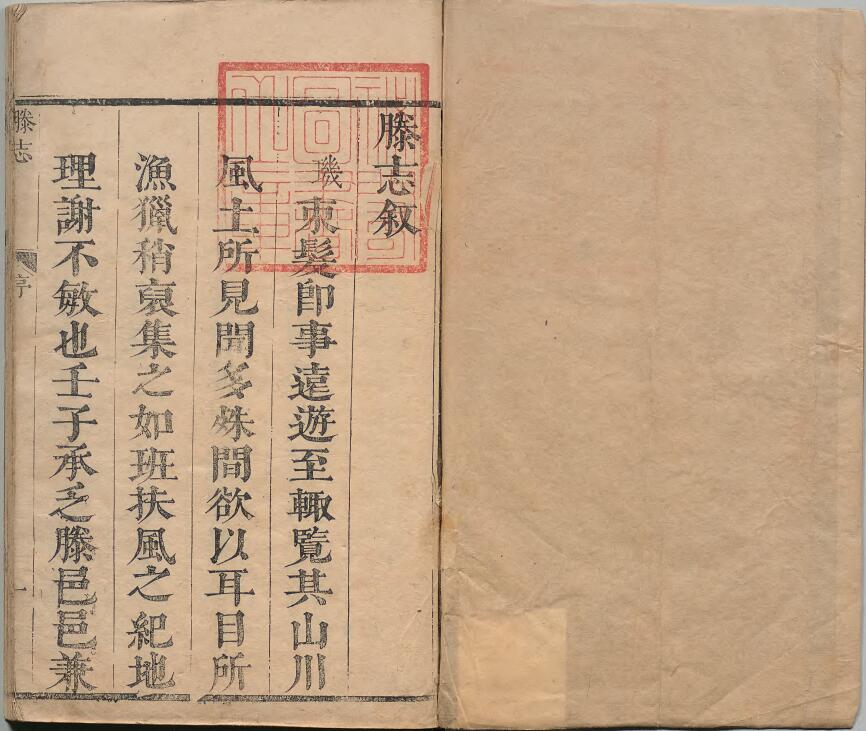 滕志叙
璣束髮即事遠遊至輙覽其山川
風土所見聞多殊間欲以耳目所
漁獵稍裒集之如班扶風之紀地
理謝不敏也壬子承乏滕邑邑兼
滕志 序 一